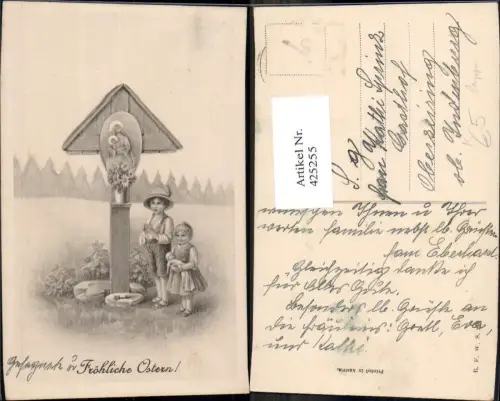 Gesegnete u. Fröhliche Ostern!
Artikel Nr.
425255
S. g.
Frau Kathi Heinz
Gasthof
Oberzeiring
ob. Judenburg
65
wünschen Ihnen u Ihrer
werten Familie nebst lb. Grüßen
Fam Eberhard.
Gleichzeitig danke ich
für Alles Gute,
Besonders lb. Grüße an
die Fräuleins: Gretl, Eva,
und Kathi
Printed in Austria.
B. F. W. S.